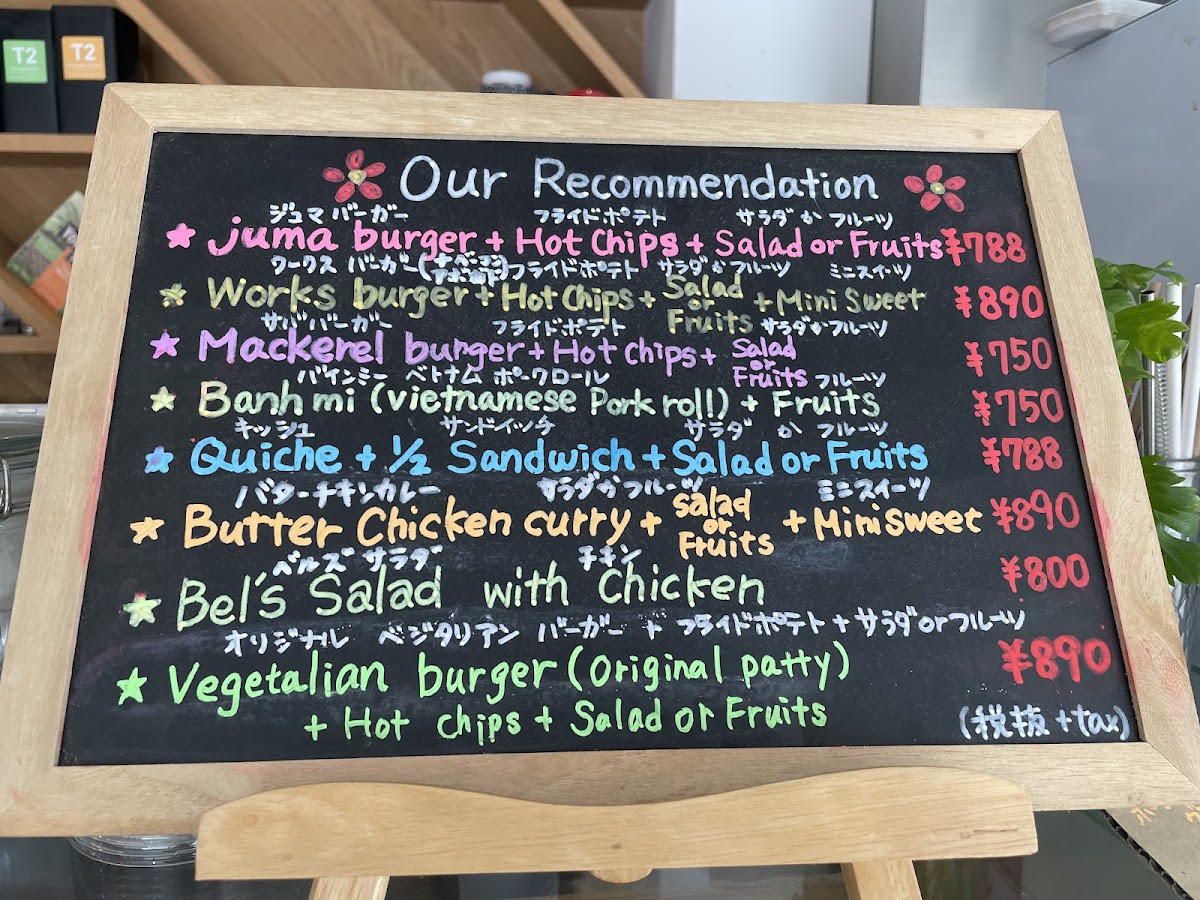 T2 T2
Our Recommendation
ジュマ バーガー フライドポテト サラダ か フルーツ
juma burger + Hot Chips + Salad or Fruits ¥788
ワークス バーガー フライドポテト サラダ か フルーツ ミニスイーツ
Works burger + Hot Chips + Salad or Fruits + Mini Sweet ¥890
サバ バーガー フライドポテト サラダ か フルーツ
Mackerel burger + Hot chips + Salad or Fruits ¥750
バインミー ベトナム ポークロール フルーツ
Banh mi (vietnamese Pork roll) + Fruits ¥750
キッシュ サンドイッチ サラダ か フルーツ
Quiche + ½ Sandwich + Salad or Fruits ¥788
バターチキンカレー サラダ か フルーツ ミニスイーツ
Butter Chicken curry + Salad or Fruits + Mini Sweet ¥890
ベルズ サラダ チキン
Bel's Salad with Chicken ¥800
オリジナル ベジタリアン バーガー + フライドポテト + サラダ or フルーツ
Vegetalian burger (original patty) ¥890
+ Hot chips + Salad or Fruits
(税抜 + tax)